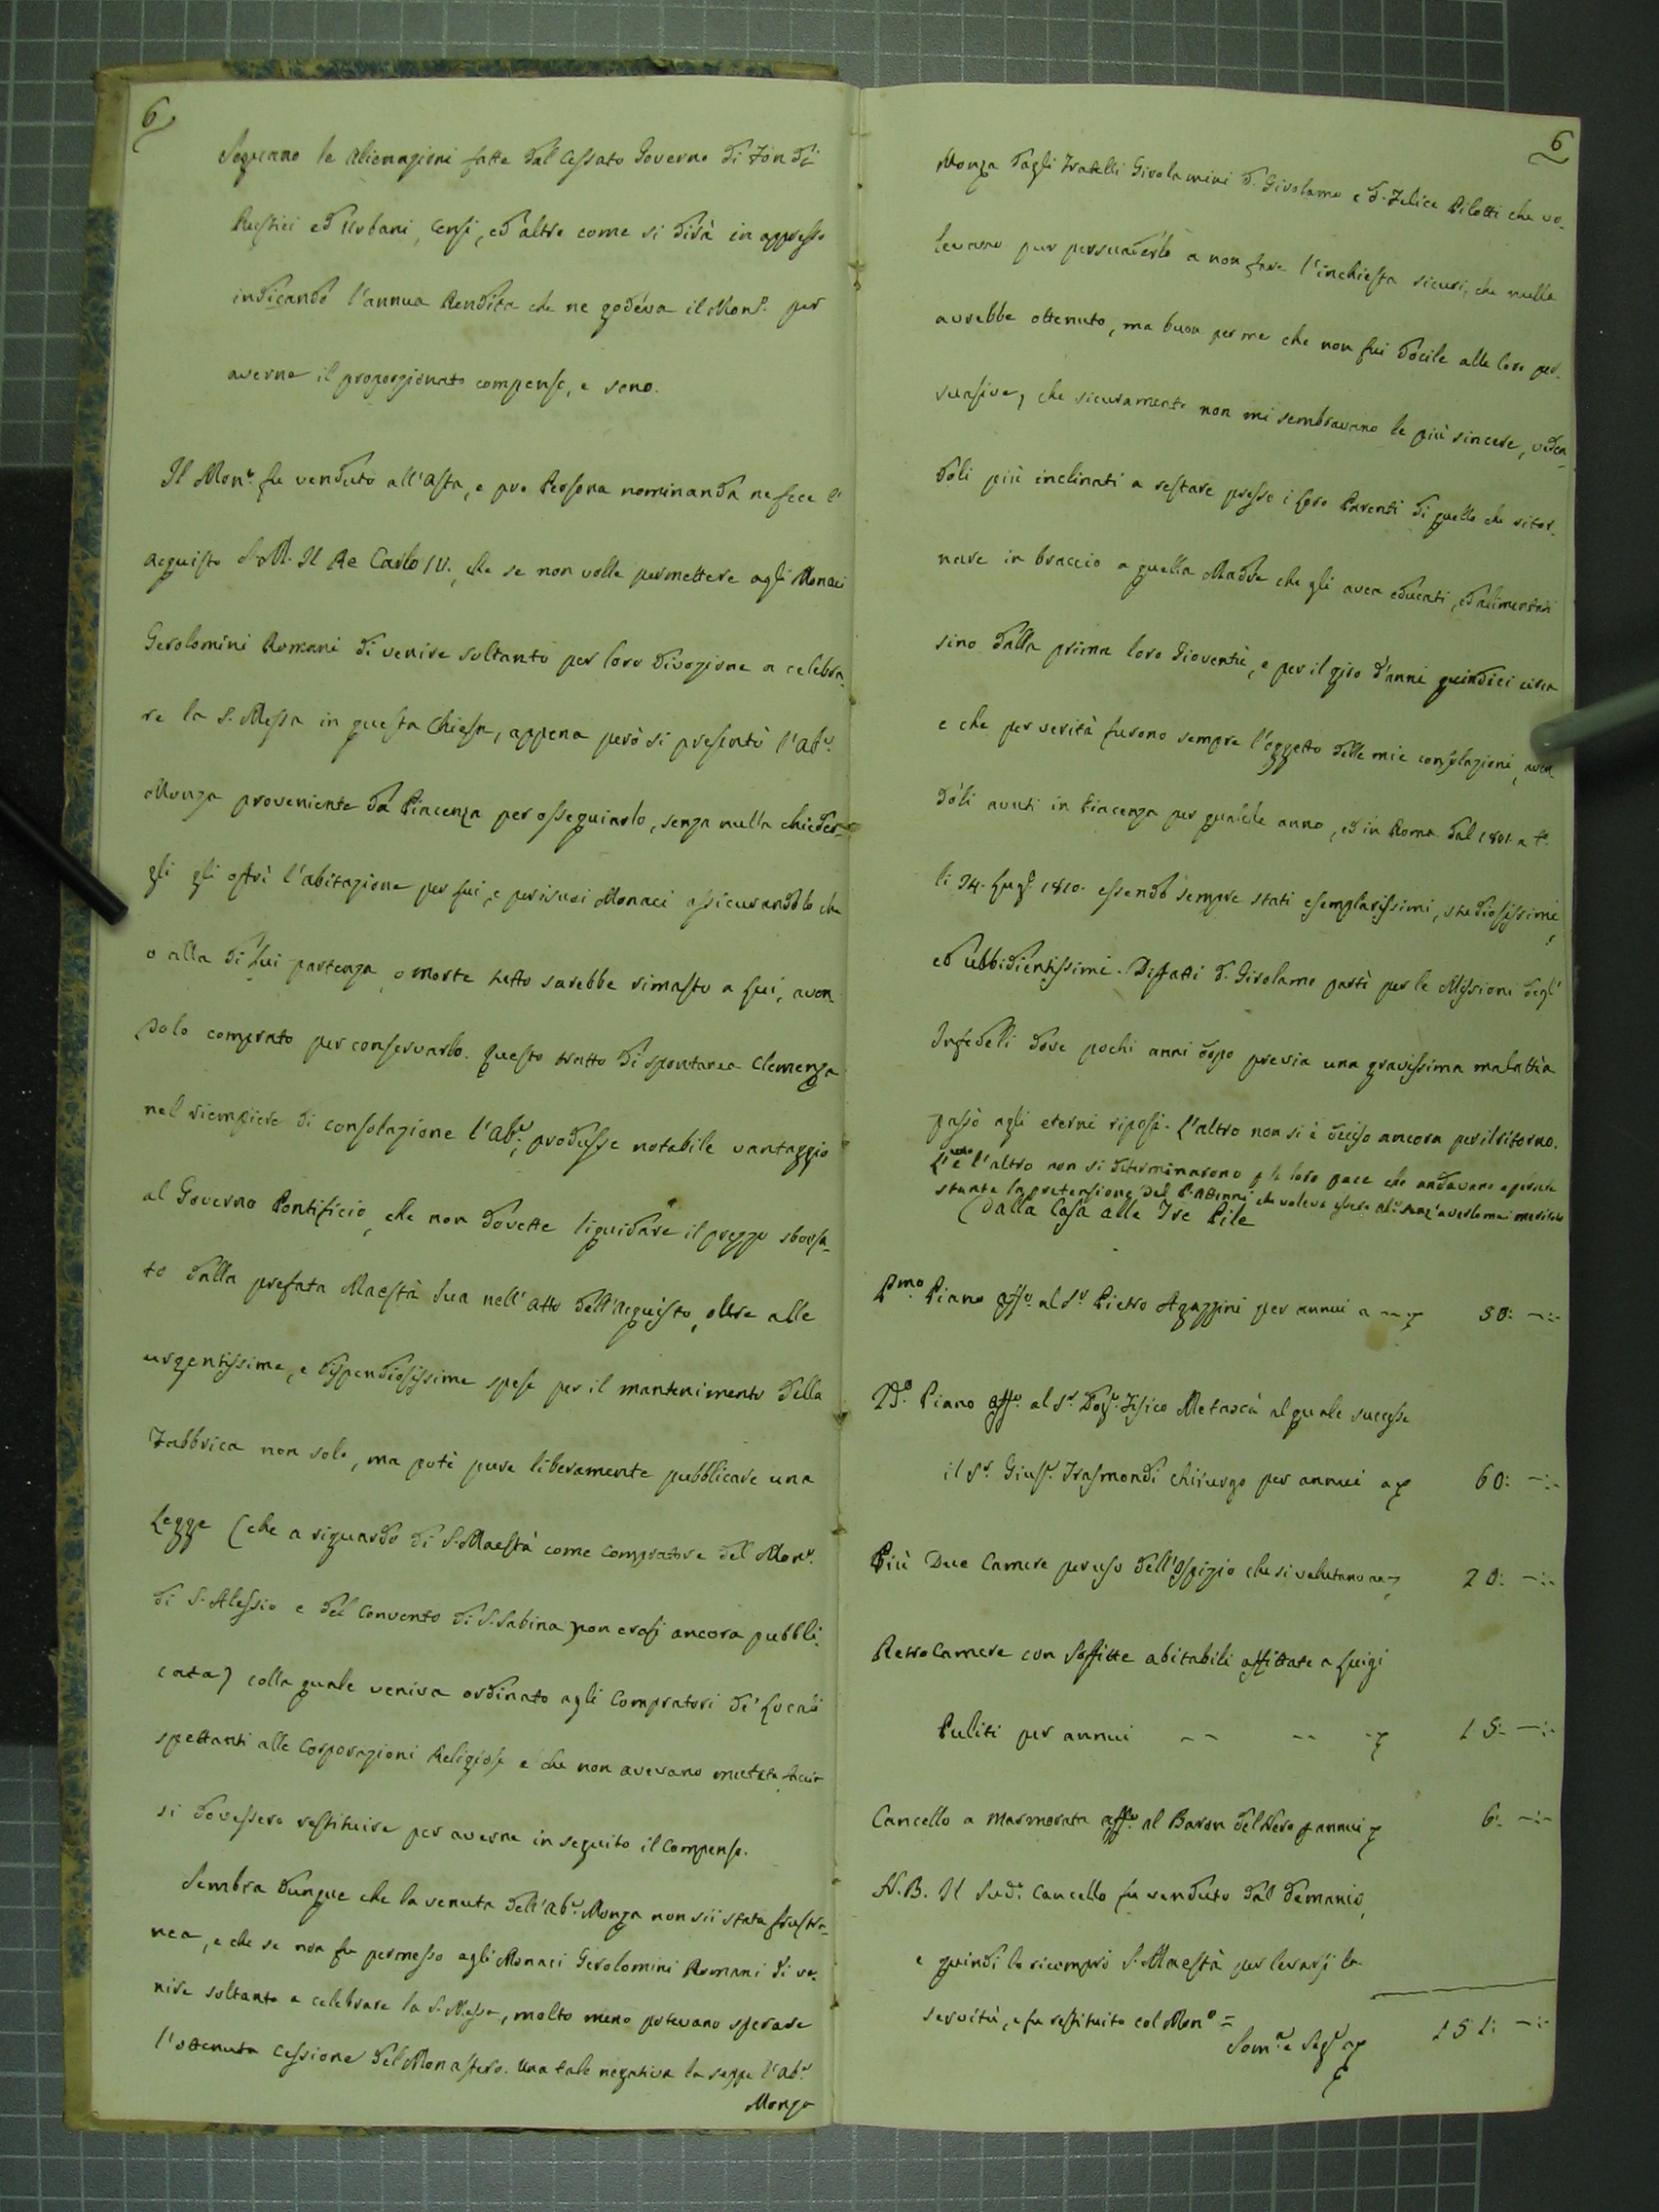 6
Seguano le alienazioni fatte dal Cessato Governo di Fondi
Rustici ed Urbani, Censi, ed altro come si dirà in appresso
indicando l'annua Rendita che ne godeva il Mon.o per
averne il proporzionato compenso, e sono.
Il Mon.o fu venduto all'asta, e pro Persona nominanda ne fece l'
acquisto S. M. Il Re Carlo IV., che se non volle permettere agli Monaci
Gerolomini Romani di venire soltanto per loro divozione a celebra-
re la S. Messa in questa Chiesa, appena però si presentò l'Ab.e
Monza proveniente da Piacenza per ossequiarlo, senza nulla chieder-
gli gli offrì l'abitazione per lui, e per i suoi Monaci assicurandolo che
o alla di lui partenza, o morte tutto sarebbe rimasto a lui, aven
dolo comprato per conservarlo. Questo tratto di spontanea Clemenza
nel riempiere di consolazione l'Ab.e, produsse notabile vantaggio
al Governo Pontificio, che non dovette liquidare il prezzo sborsa-
to dalla prefata Maestà Sua nell'atto dell'acquisto, oltre alle
urgentissime, e dispendiosissime spese per il mantenimento della
Fabbrica non solo, ma potè pure liberamente pubblicare una
Legge (che a riguardo di S. Maestà come Compratore del Mon.o
di S. Alessio e del Convento di S. Sabina non erasi ancora pubbli-
cata) colla quale veniva ordinato agli Compratori de' Locali
spettanti alle Corporazioni Religiose e che non avevano mutata
si dovessero restituire per averne in seguito il Compenso.
Sembra dunque che la venuta dell'Ab.e Monza non sii stata frustra-
nea, e che se non fu permesso agli Monaci Gerolomini Romani di ve-
nire soltanto a celebrare la S. Messa, molto meno potevano sperare
l'ottenuta Cessione del Monastero. Una tale negativa la seppe l'Ab.e
Monza
6
Monza dagli Fratelli Girolamini D. Girolamo e D. Felice Pilotti che vo-
levano pur persuaderlo a non fare l'inchiesta sicuri, che nulla
avrebbe ottenuto, ma buon per me che non fui docile alle loro per-
suasive, che sicuramente non mi sembravano le più sincere, veden-
doli più inclinati a restare presso i loro Parenti di quello che ritor-
nare in braccio a quella Madre che gli avea educati, ed alimentati
sino dalla prima loro Gioventù, e per il giro d'anni quindici circa
e che per verità furono sempre l'oggetto delle mie consolazioni, aven-
doli avuti in Piacenza per qualche anno, ed in Roma dal 1801. a tt.o
li 14. Lug.o 1810. essendo sempre stati esemplarissimi, studiosissimi,
ed ubbidientissimi. Difatti D. Girolamo partì per le Missioni degl'
Infedeli dove pochi anni dopo previa una gravissima malattia
passò agli eterni riposi. L'altro non si è deciso ancora per il ritorno.
L'uno e l'altro non si determinarono p la loro pace che andavano a perdere
stante la pretensione del P. che voleva essere Ab.e senz'averlo mai meritato
Dalla Casa alle Tre Pile
P.mo Piano aff.o al S.r Pietro Agazzini per annui a -- 50: -:-
2.do Piano aff.o al S.r Dog.r Fisico Metaxà al quale successe
il S.r Gius.e Trasmondi Chirurgo per annui a 60: -:-
Più Due Camere per uso dell'Ospizio che si valutano a 20: -:-
Retro Camere con Soffitte abitabili affittate a Luigi
Puliti per annui -- -- - 15: -:-
Cancello a Marmorata aff.o al Baron del Nero p annui 6: -:-
N.B. Il Sud.o Cancello fu venduto dal Demanio,
e quindi lo ricomprò S. Maestà per levarsi la
servitù, e fu restituito col Mon.o =
Som.a e Seg.e 151: -:-